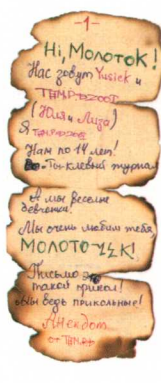 -1-
Hi, МолотоК!
Нас зовут Yusick и
(Юля и Лиза)
Я
Нам по 14 лет!
Ты клевый журнал
А мы веселые
девчонки!
Мы очени любим тебя,
МОЛОТО-Ц&К!
Письмо
такой прикол!
Мы ведь прикольные!
Анекдот
от